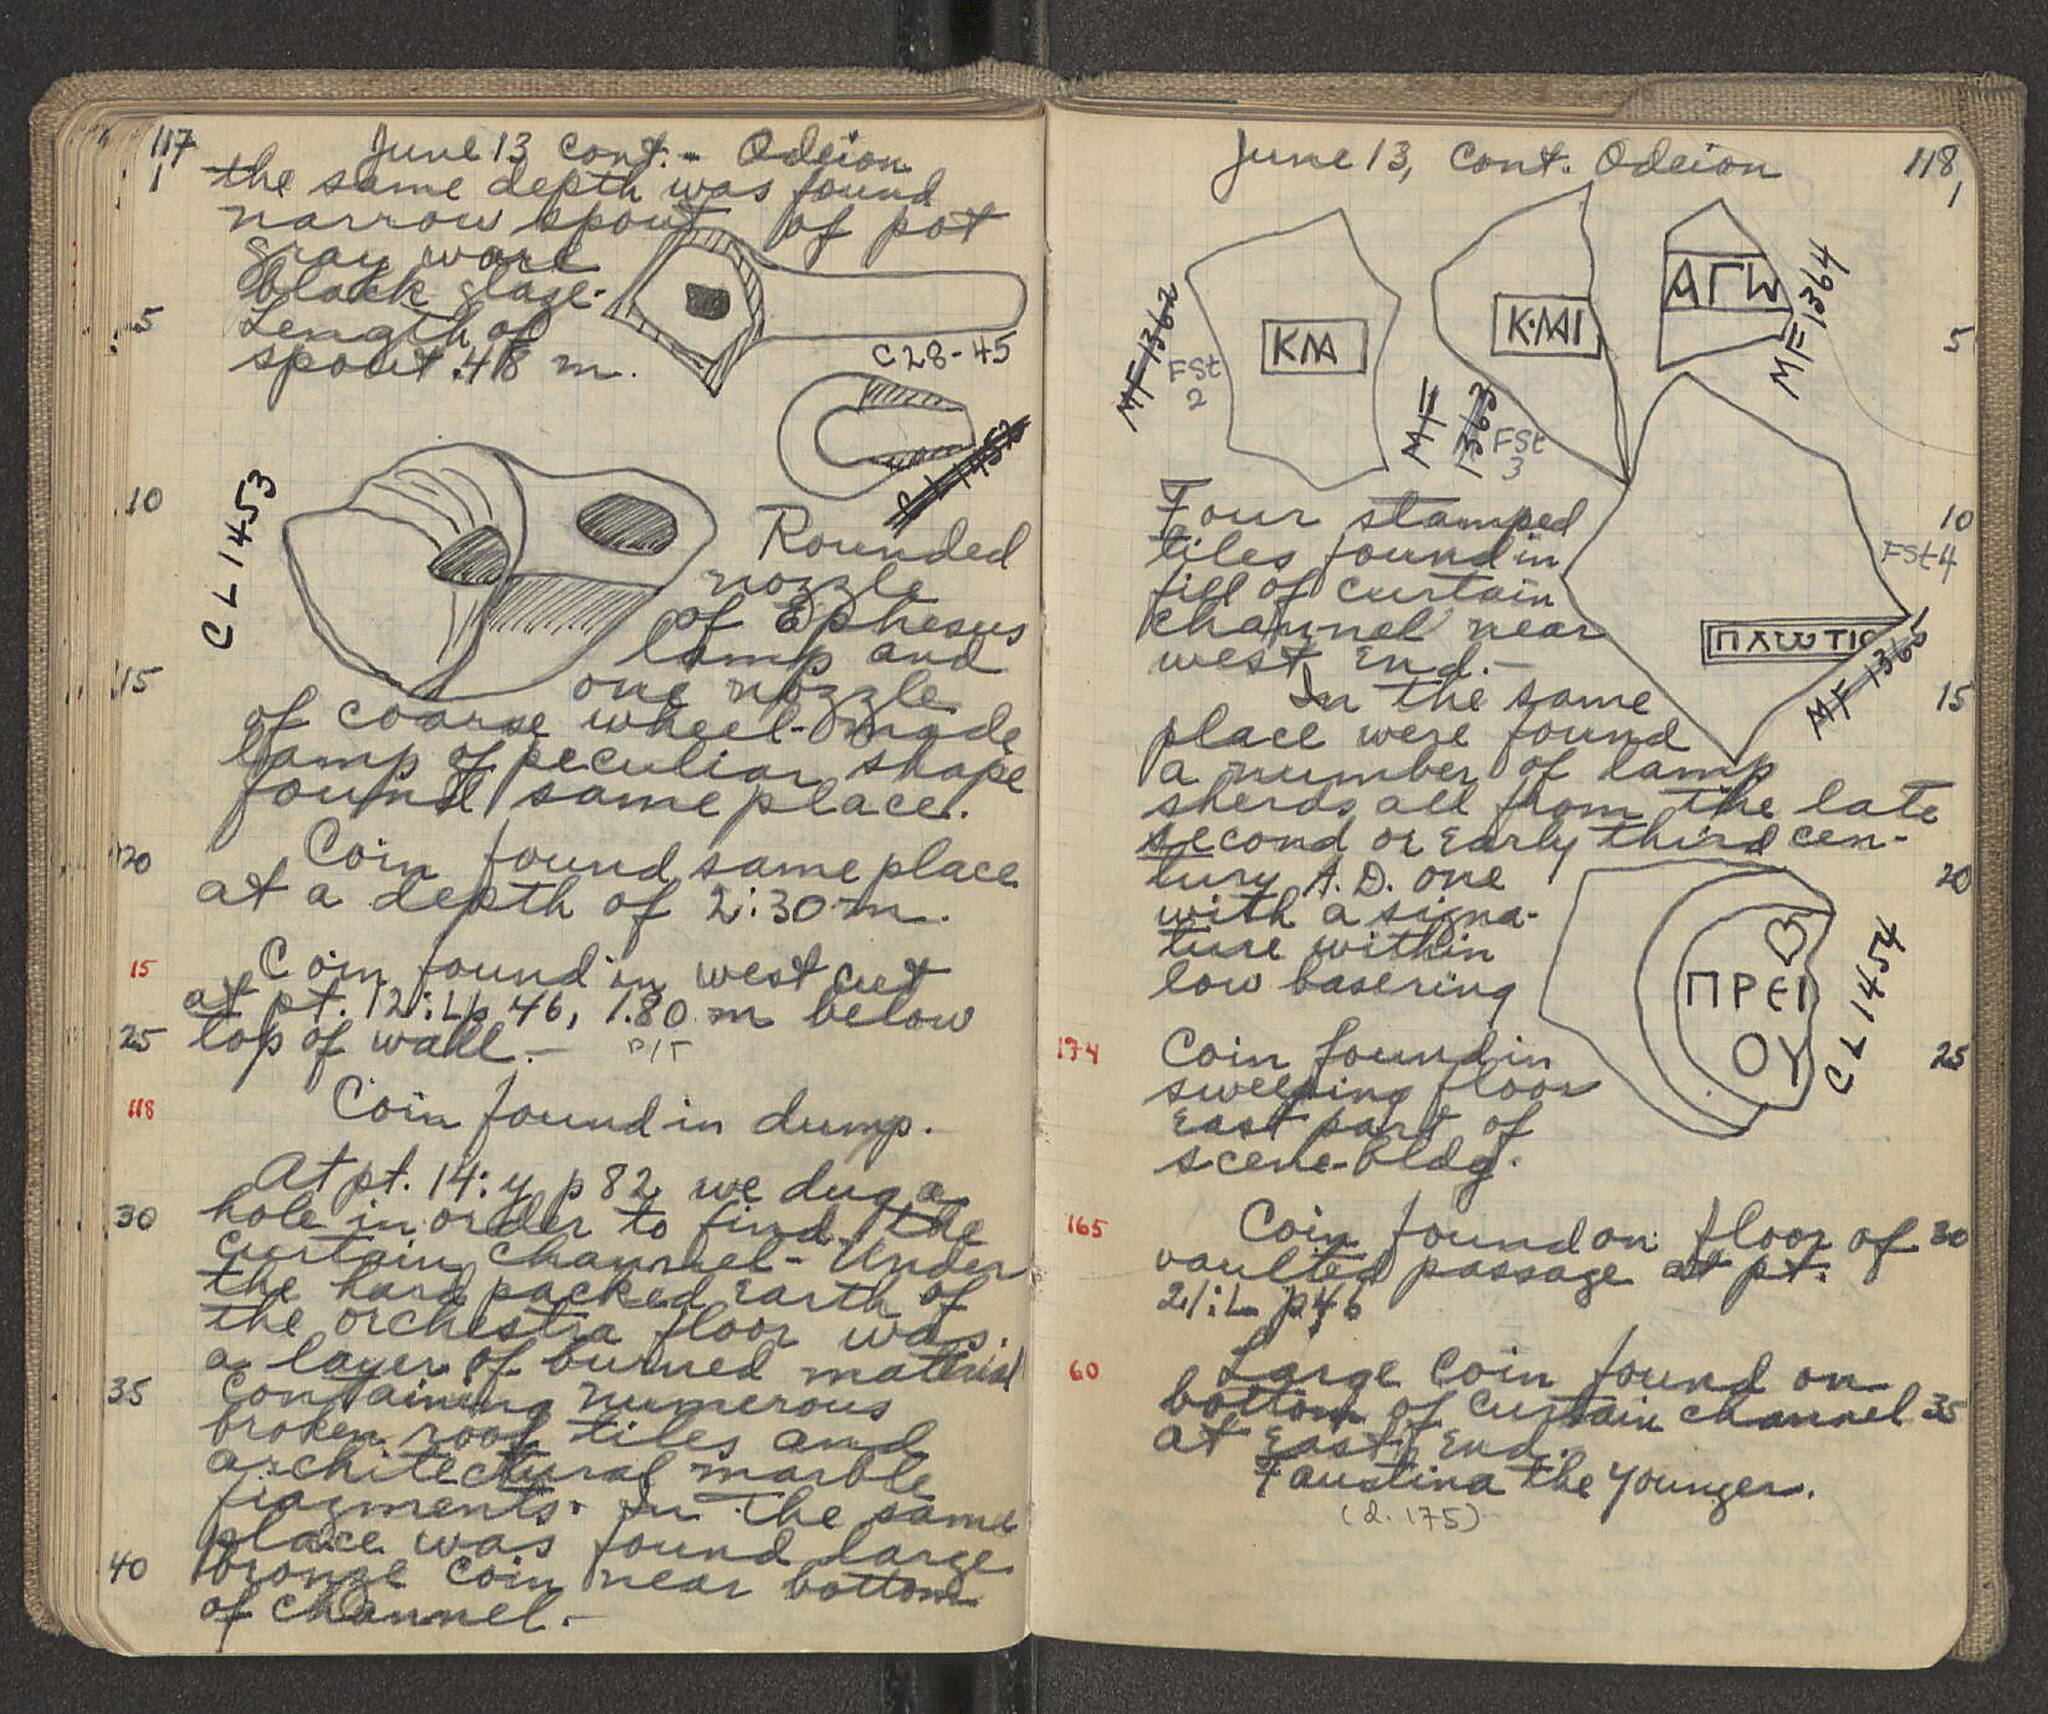 117
June 13 cont. - Odeion
1
the same depth was found
narrow spout of pot
gray ware
black glaze.
5
Length of
spout .48 m.
C 28-45
CL 1453
10
Rounded
nozzle
of Ephesus
lamp and
15
one nozzle
of coarse wheel-made
lamp of peculiar shape
found same place.
20
Coin found same place
at a depth of 2:30 m.
15
Coin found in west cut
at pt. 12:L p 46, 1.80 m below
25
top of wall.-
118
Coin found in dump.
At pt. 14:y p 82 we dug a
30
hole in order to find the
curtain channel - Under
the hard packed earth of
the orchestra floor was
a layer of burned material
35
containing numerous
broken roof tiles and
architectural marble
fragments. In the same
place was found large
40
bronze coin near bottom
of channel.-
June 13, cont. Odeion
118
1
MF 1362
FSt
2
KM
K·MI
MF
1363
FSt
3
ΑΓΩ
MF 1364
5
Four stamped
10
tiles found in
FSt 4
fill of curtain
channel near
west end.-
ΠΛΩΤΙΟ
MF 1365
In the same
15
place were found
a number of lamp
sherds all from the late
second or early third cen-
tury A.D. one
20
with a signa-
ture within
low basering
ΠΡΕΙ
ΟΥ
CL 1454
174
Coin found in
25
sweeping floor
East part of
scene-bldg.
165
Coin found on floor of
30
vaulted passage at pt.
21:L p 46
60
Large coin found on
bottom of curtain channel
35
at East End.
Faustina the Younger.
(d. 175)